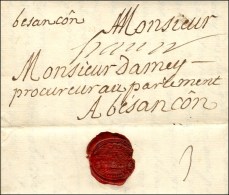 besancôn Monsieur
Monsieur damey
procureur au parlement
A besancôn
3